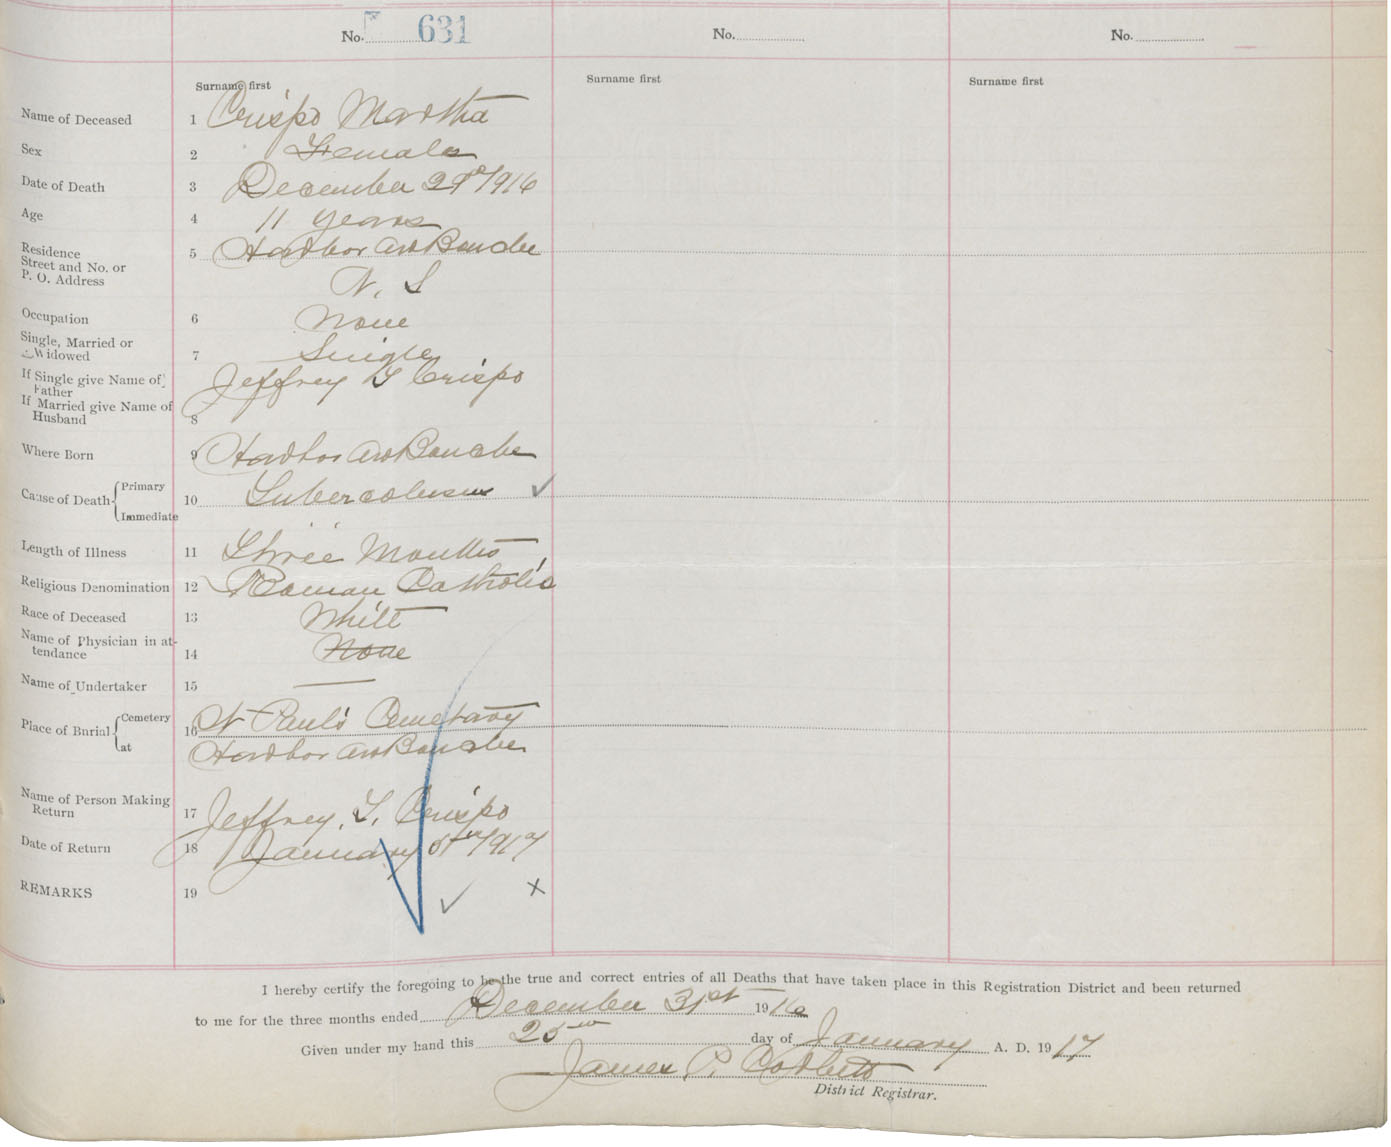 No. 631 No. No.
Surname first Surname first Surname first
Name of Deceased 1 Crispo Martha
Sex 2 Female
Date of Death 3 December 29th 1916
Age 4 11 years
Residence 5 Harbor au Bouche
Street and No. or
P. O. Address N. S
Occupation 6 None
Single, Married or
Widowed 7 Single
If Single give Name of Jeffrey T Crispo
Father
If Married give Name of
Husband 8
Where Born 9 Harbor au Bouche
Cause of Death Primary 10 Tuberculosis
Immediate
Length of Illness 11 Three Months
Religious Denomination 12 Roman Catholic
Race of Deceased 13 White
Name of Physician in at-
tendance 14 None
Name of Undertaker 15 —
Place of Burial Cemetery 16 St Paul's Cemetary
at Harbor au Bouche
Name of Person Making
Return 17 Jeffrey. T. Crispo
Date of Return 18 January 5th 1917
REMARKS 19
I hereby certify the foregoing to be the true and correct entries of all Deaths that have taken place in this Registration District and been returned
to me for the three months ended December 31st 1916
Given under my hand this 25th day of January A. D. 1917
James P. Corbett
District Registrar.